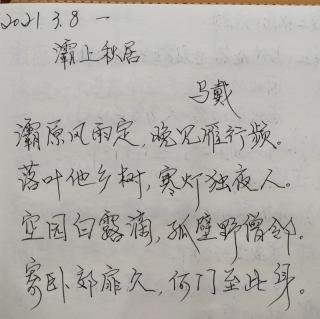 2021.3.8 一
灞上秋居
马戴
灞原风雨定，晚见雁行频。
落叶他乡树，寒灯独夜人。
空园白露滴，孤壁野僧邻。
寄卧郊扉久，何门至此身。